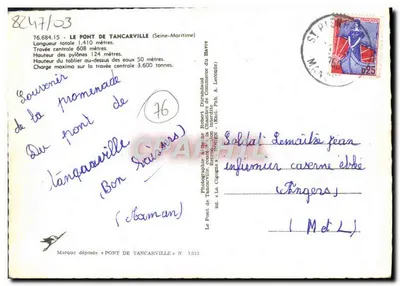 8247/03
76.684.15 - LE PONT DE TANCARVILLE (Seine-Maritime)
Longueur totale 1.410 mètres
Travée centrale 608 mètres
Hauteur des pylônes 124 mètres
Hauteur du tablier au-dessus des eaux 50 mètres
Charge maxima sur la travée centrale 3.600 tonnes.
Souvenir
de la promenade
Du pont de
Tangarville
(Bon Baisers)
(Maman)
76
0,25
Soldat Lemaître Jean
infirmier caserne
Angers
(M et L)
Marque déposée « PONT DE TANCARVILLE » N